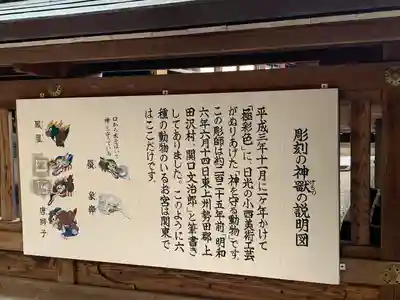 彫刻の神獣の説明図
平成三年十一月に二ヶ年かけて
「極彩色」に、日光の小西美術工芸
がぬりあげた「神を守る動物」です。
この彫師は約二百二十五年前「明和
六年六月十四日東上州勢田郡上
田沢村、関口文治郎」と筆書き
してありました。このように六
種の動物のいるお宮は関東で
はここだけです。
口から水をはいて
神を守っている
鳳凰
唐獅子